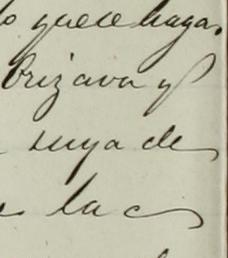 o quese haga.
Orizava y
suya de
la c